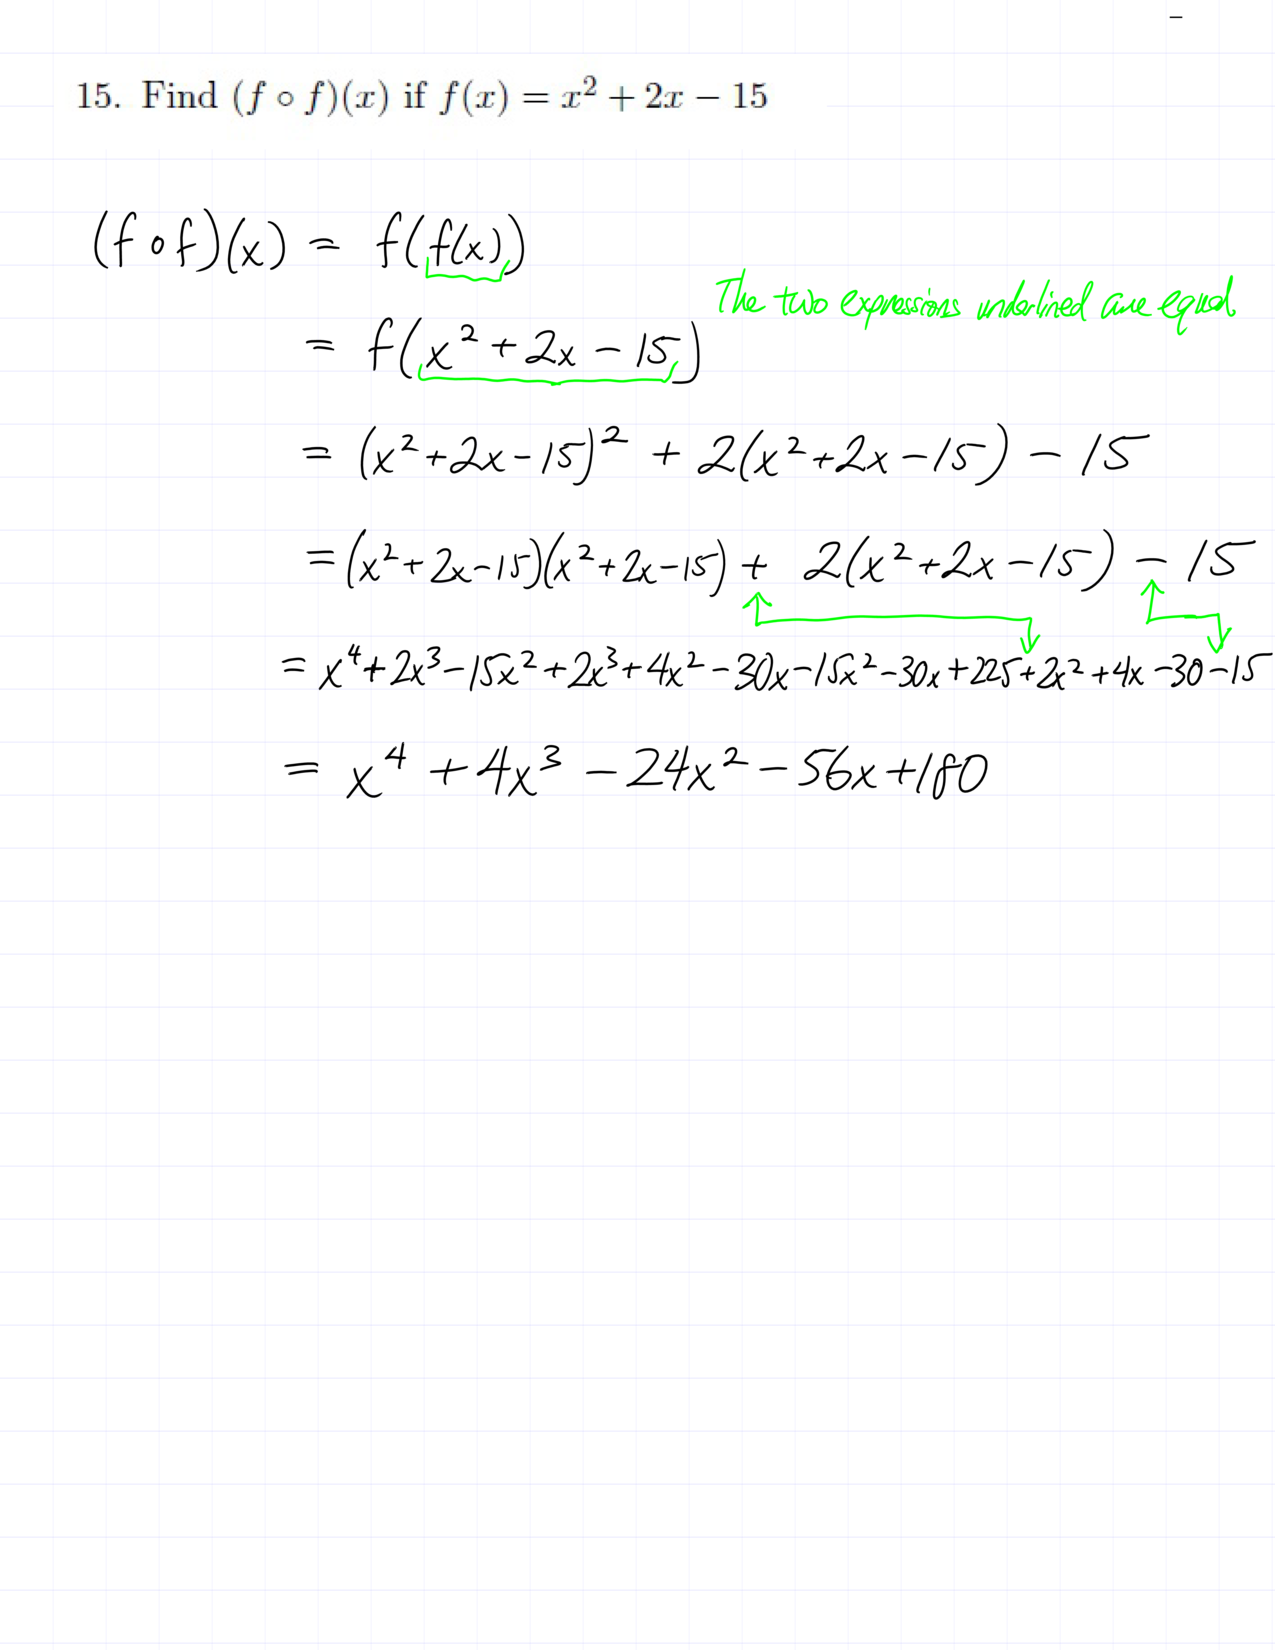 15. Find (f ∘ f)(x) if f(x) = x² + 2x − 15
(f∘f)(x) = f(f(x))
The two expressions underlined are equal.
= f(x² + 2x − 15)
= (x²+2x−15)² + 2(x²+2x−15) − 15
= (x²+2x−15)(x²+2x−15) + 2(x²+2x−15) − 15
= x⁴+2x³−15x²+2x³+4x²−30x−15x²−30x+225+2x²+4x−30−15
= x⁴ + 4x³ − 24x² − 56x + 180